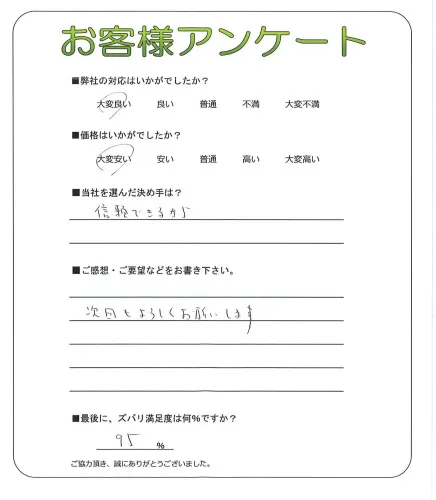 お客様アンケート
■弊社の対応はいかがでしたか？
大変良い 良い 普通 不満 大変不満
■価格はいかがでしたか？
大変安い 安い 普通 高い 大変高い
■当社を選んだ決め手は？
信頼できるから
■ご感想・ご要望などをお書き下さい。
次回もよろしくお願いします
■最後に、ズバリ満足度は何%ですか？
95 %
ご協力頂き、誠にありがとうございました。